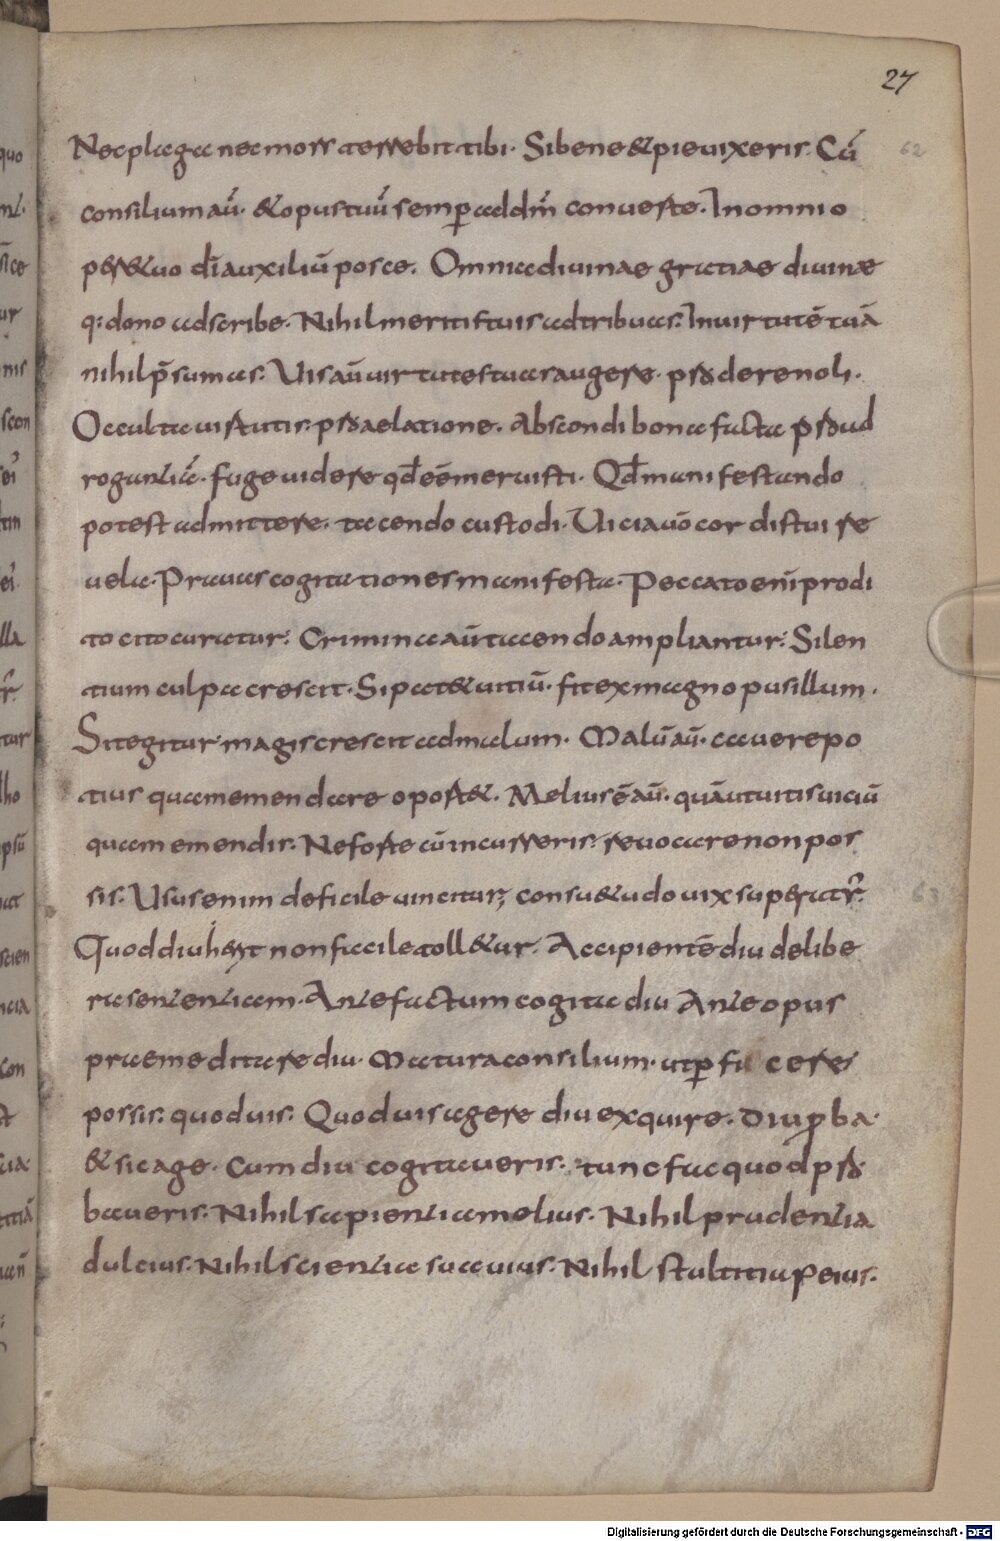 27
Nec plaga nec mors terrebit tibi. Si bene & pie uixeris. Cū
62
consilium aū. & opus tuū semp ad dm̄ conuerte. In omni o
pere tuo dī auxiliū posce. Omnia diuinae gratiae diuinae
q: dono adscribe. Nihil meritis tuis adtribuas. In uirtutē tuā
nihil p̄sumas. Uis aū uirtutes tuas augere. prodere noli.
Occulta uirtutis. pro aelatione. Abscondi bona facta pro ad
rogantiā. fuge uidere qd eē meruisti. Qd manifestando
potest admittere. tacendo custodi. Uicia uō cordis tui re
uela. Prauas cogitationes manifesta. Peccato enī prodi
to cito curatur. Crimina aū tacendo ampliantur. Silen
tium culpa crescit. Si pat& uitiū. fit ex magno pusillum.
Si tegitur magis crescit ad malum. Malū aū. cauere po
tius quam emendare oport&. Melius ē aū. quā ut uitis uiciū
quam emendis. Ne forte cū incurreris. reuocare non pos
sis. Usus enim deficile uincitur, consu&udo uix superatr̄.
63
Quod diu herit non facile toll&ur. Accipientē diu delibe
ra sententiam. Ante factum cogita diu Ante opus
praemeditare diu. Matura consilium. ut p facere
possis. quod uis. Quod uis agere diu exquire. Diu proba.
& sic age. Cum diu cogitaueris. tunc fac quod pro
baueris. Nihil sapientia melius. Nihil prudentia
dulcius. Nihil scientia suauius. Nihil stultitia peius.
Digitalisierung gefördert durch die Deutsche Forschungsgemeinschaft - DFG